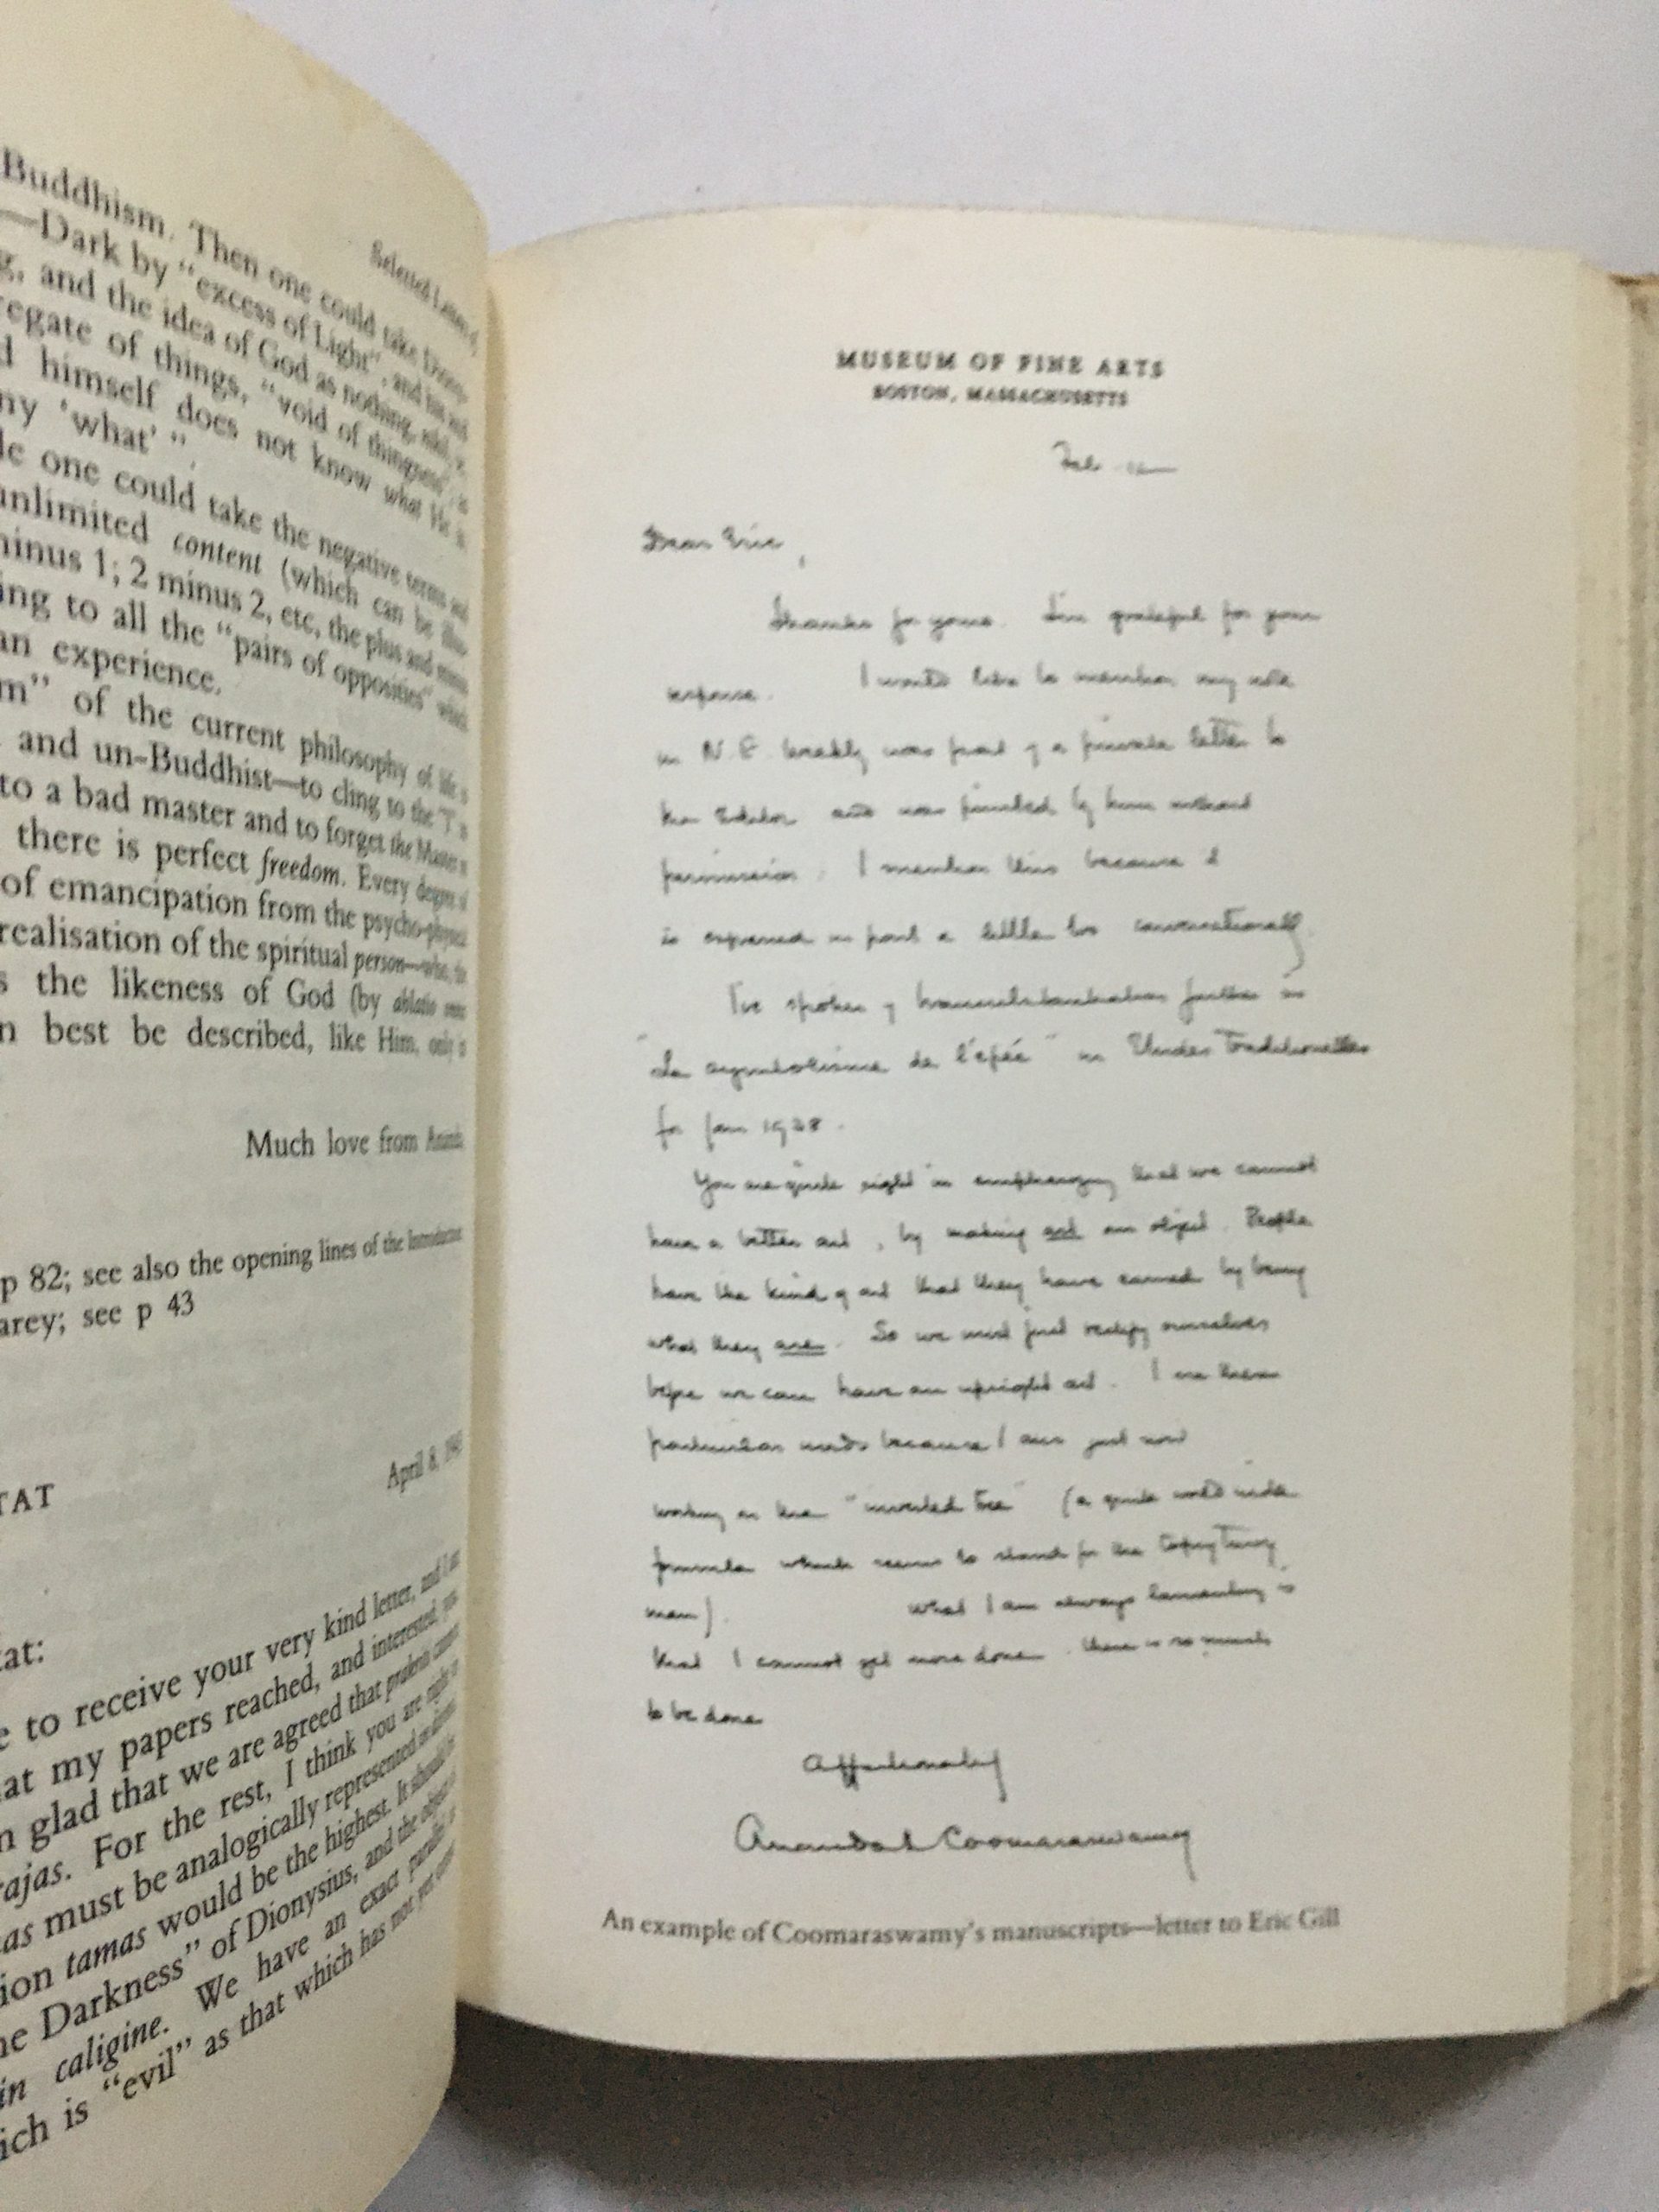 Selected Letters of
Buddhism. Then one could take
—Dark by "excess of Light", and
g, and the idea of God as nothing,
regate of things, "void of thingness",
d himself does not know what He is
ny 'what' ".
le one could take the negative terms
unlimited content (which can be
minus 1; 2 minus 2, etc, the plus and minus
ing to all the "pairs of opposites" which
an experience.
m" of the current philosophy of life is
and un-Buddhist—to cling to the "I"
to a bad master and to forget the Master
there is perfect freedom. Every degree of
of emancipation from the psycho-physical
realisation of the spiritual person—who,
s the likeness of God (by ablatio
n best be described, like Him, only
Much love from
p 82; see also the opening lines of the Introduction
arey; see p 43
TAT
April 8,
tat:
e to receive your very kind letter, and I am
at my papers reached, and interested, you
n glad that we are agreed that pralaya cannot
rajas. For the rest, I think you are right in
as must be analogically represented as
ion tamas would be the highest. It should be
he Darkness" of Dionysius, and the object
in caligine. We have an exact parallel in
ich is "evil" as that which has not yet
MUSEUM OF FINE ARTS
BOSTON, MASSACHUSETTS
Feb 12
Dear Eric,
Thanks for yours. I'm grateful for your
response. I would like to mention my note
in N. E. Weekly was part of a private letter to
the Editor and was printed by him without
permission. I mention this because it
is expressed in part a little too conversationally.
I've spoken of transubstantiation further in
"Le symbolisme de l'épée" in Etudes Traditionelles
for Jan 1938.
You are quite right in emphasizing that we cannot
have a better art, by making art an object. People
have the kind of art that they have earned by being
what they are. So we must first rectify ourselves
before we can have an upright art. I use these
particular words because I am just now
working on the "inverted tree" (a quite world wide
formula which seems to stand for the topsyturvy
man). What I am always lamenting is
that I cannot get more done. there is so much
to be done
Affectionately
Ananda K Coomaraswamy
An example of Coomaraswamy's manuscripts—letter to Eric Gill